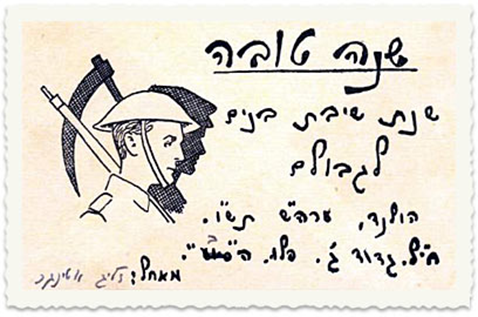 שנה טובה
שנת שיבת בנים
לגבולם
הולנד, ערה"ש תש"ו.
חי"ל. גדוד ג'. פלו.
מאחל: זליג